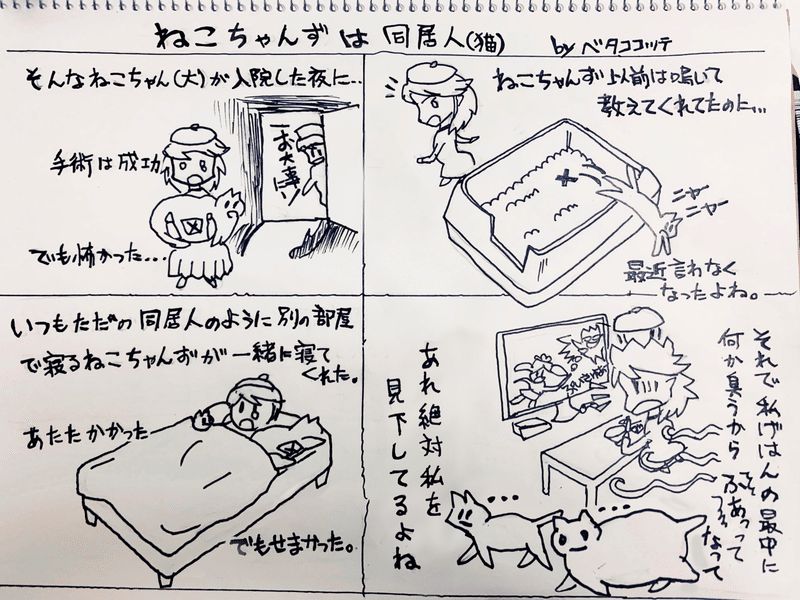 ねこちゃんずは 同居人(猫)
by ベタココッテ
ねこちゃんず以前は鳴いて
教えてくれてたのに...
ニャー
ニャー
最近言わなく
なったよね。
それで私ごはんの最中に
何か臭うから
なって
あれ絶対私を
見下してるよね
そんなねこちゃん(大)が入院した夜に...
手術は成功
お大事にッ
でも怖かった...
いつもただの同居人のように別の部屋
で寝るねこちゃんずが一緒に寝て
くれた。
あたたかかった
でもせまかった。